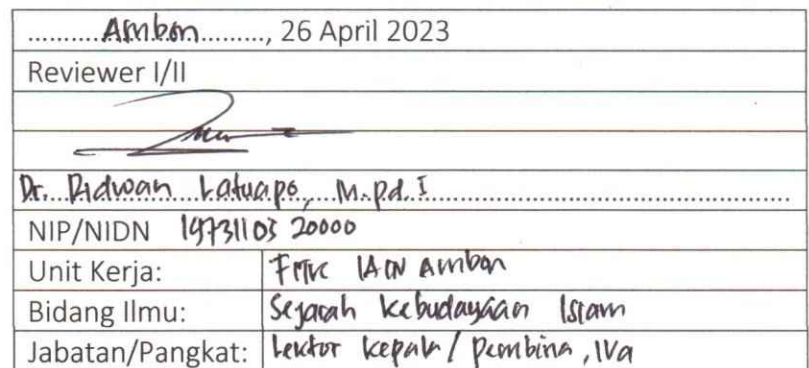 Ambon, 26 April 2023
Reviewer I/II
Dr. Ridwan Latuapo, M.Pd.I
NIP/NIDN 19731103 20000
Unit Kerja: FITK IAIN Ambon
Bidang Ilmu: Sejarah Kebudayaan Islam
Jabatan/Pangkat: Lektor Kepala / Pembina, IVa